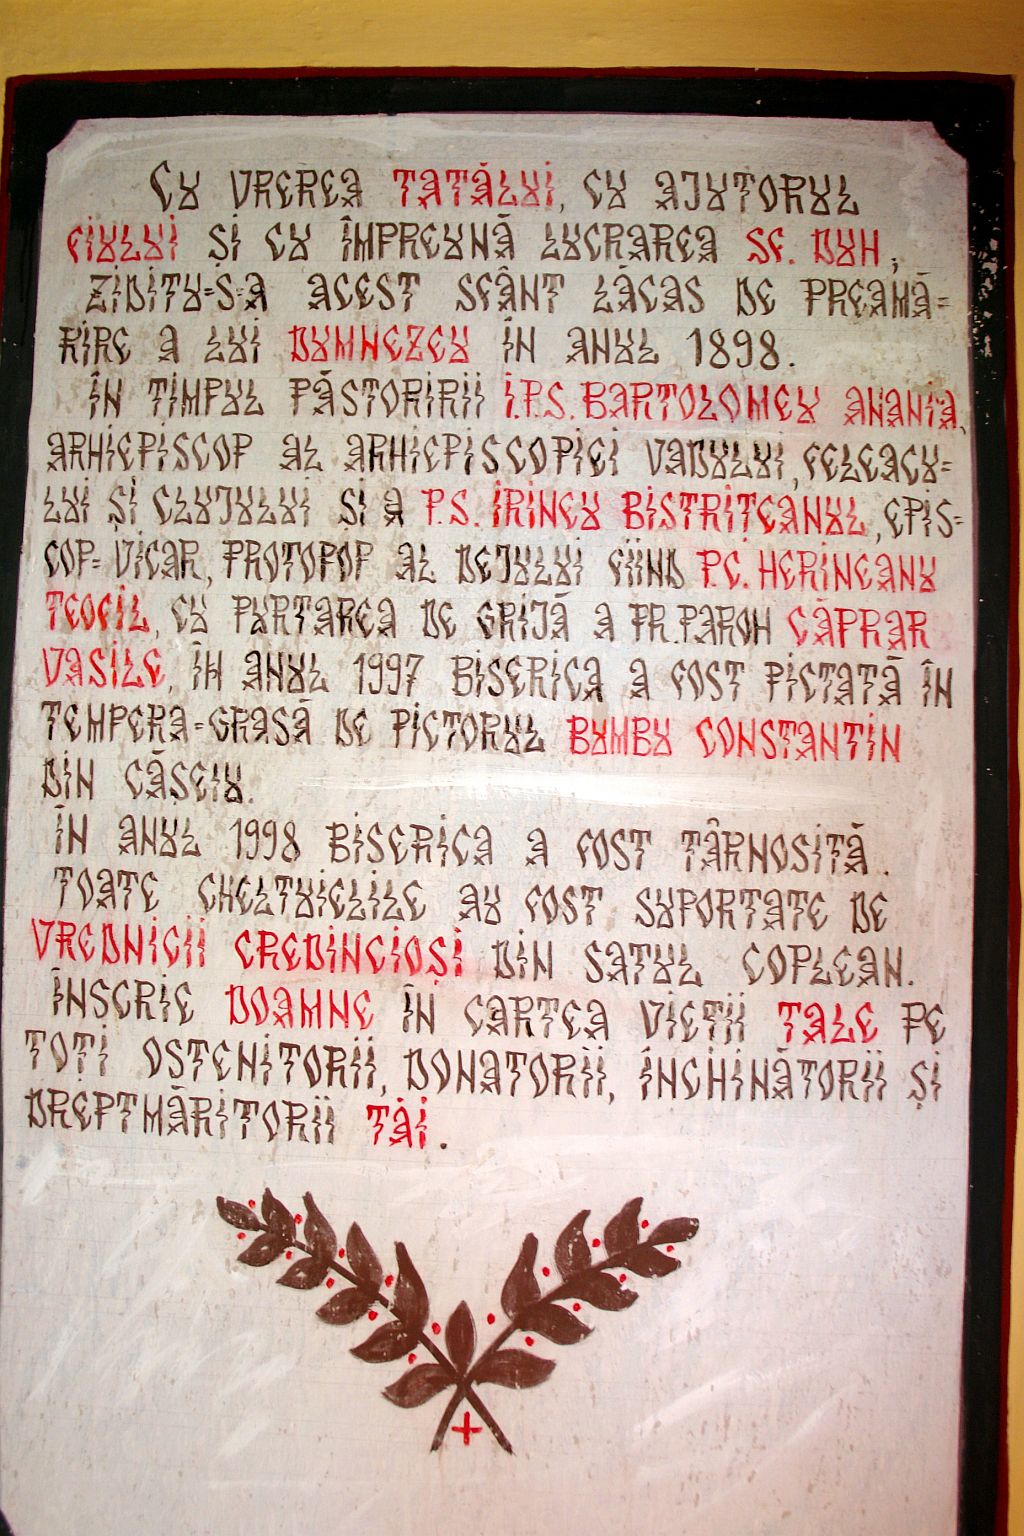 Cu vrerea TATĂLUI, cu ajutorul
FIULUI și cu împreună lucrarea SF. DUH,
ziditu-s-a acest sfânt lăcas de preamă-
rire a lui DUMNEZEU în anul 1898.
În timpul păstoririi I.P.S. BARTOLOMEU ANANIA,
arhiepiscop al arhiepiscopiei Vadului, Feleacu-
lui și Clujului și a P.S. IRINEU BISTRIȚEANUL, epis-
cop-vicar, protopop al Dejului fiind P.C. HERINEANU
TEOFIL, cu purtarea de grijă a pr. paroh CĂPRAR
VASILE, în anul 1997 biserica a fost pictată în
tempera-grasă de pictorul BUMBU CONSTANTIN
din Cășeiu.
În anul 1998 biserica a fost târnosită.
Toate cheltuielile au fost suportate de
VREDNICII CREDINCIOȘI din satul Coplean.
Înscrie DOAMNE în cartea vieții TALE pe
toți ostenitorii, donatorii, închinătorii și
dreptmăritorii TĂI.